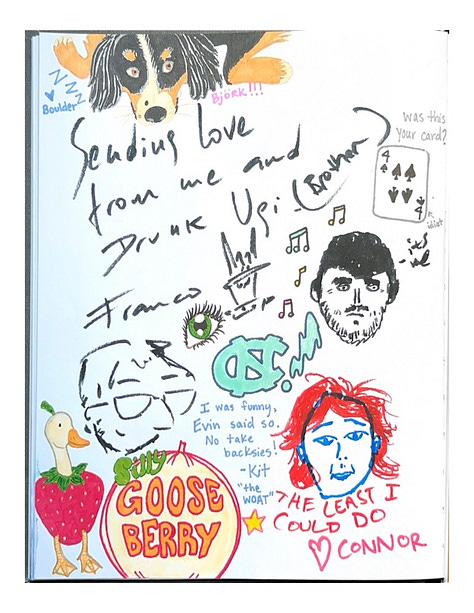 Z Z Z Z
Boulder
BJÖRK!!!
Sending love
from me and
Drunk Ugi (Brother)
Franco
was this
your card?
4
4
idiot
it's
me
NC
I was funny,
Evin said so.
No take
backsies!
-Kit
"the
WOAT"
Silly
GOOSE
BERRY
THE LEAST I
COULD DO
CONNOR